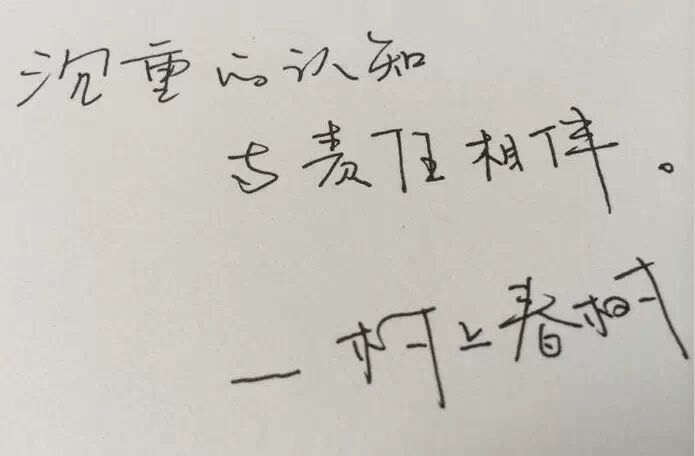 沉重的认知
与责任相伴。
— 村上春树